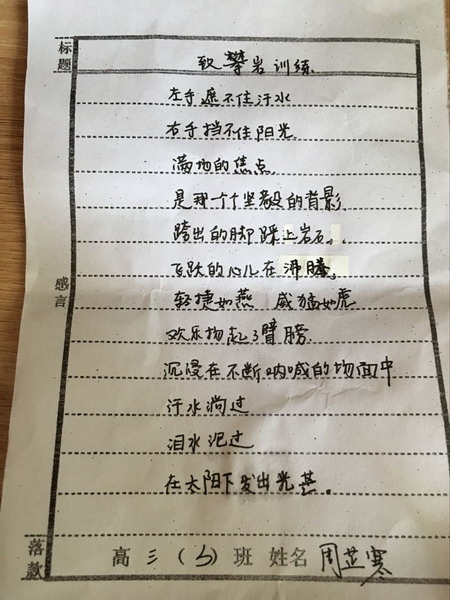 标题
致攀岩训练
左手遮不住汗水
右手挡不住阳光
满地的焦点
是那一个个坚毅的背影
跨出的脚踩上岩石。
飞跃的心儿在沸腾。
感言
轻捷如燕 威猛如虎
欢乐抱起了臂膀
沉浸在不断呐喊的场面中
汗水淌过
泪水
在太阳下发出光芒。
落款
高三( )班 姓名 周芷寒